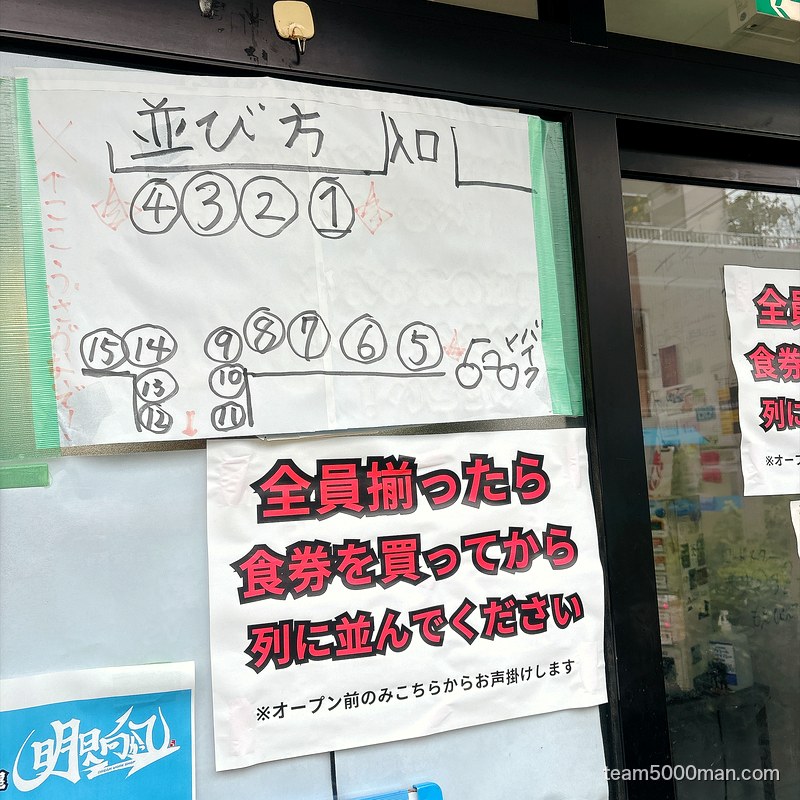 並び方
入口
④ ③ ② ①
⑮ ⑭ ⑨ ⑧ ⑦ ⑥ ⑤ バイク
⑬ ⑩
⑫ ⑪
全員揃ったら
食券を買ってから
列に並んでください
※オープン前のみこちらからお声掛けします
全員
食券
列に
※オープ
team5000man.com